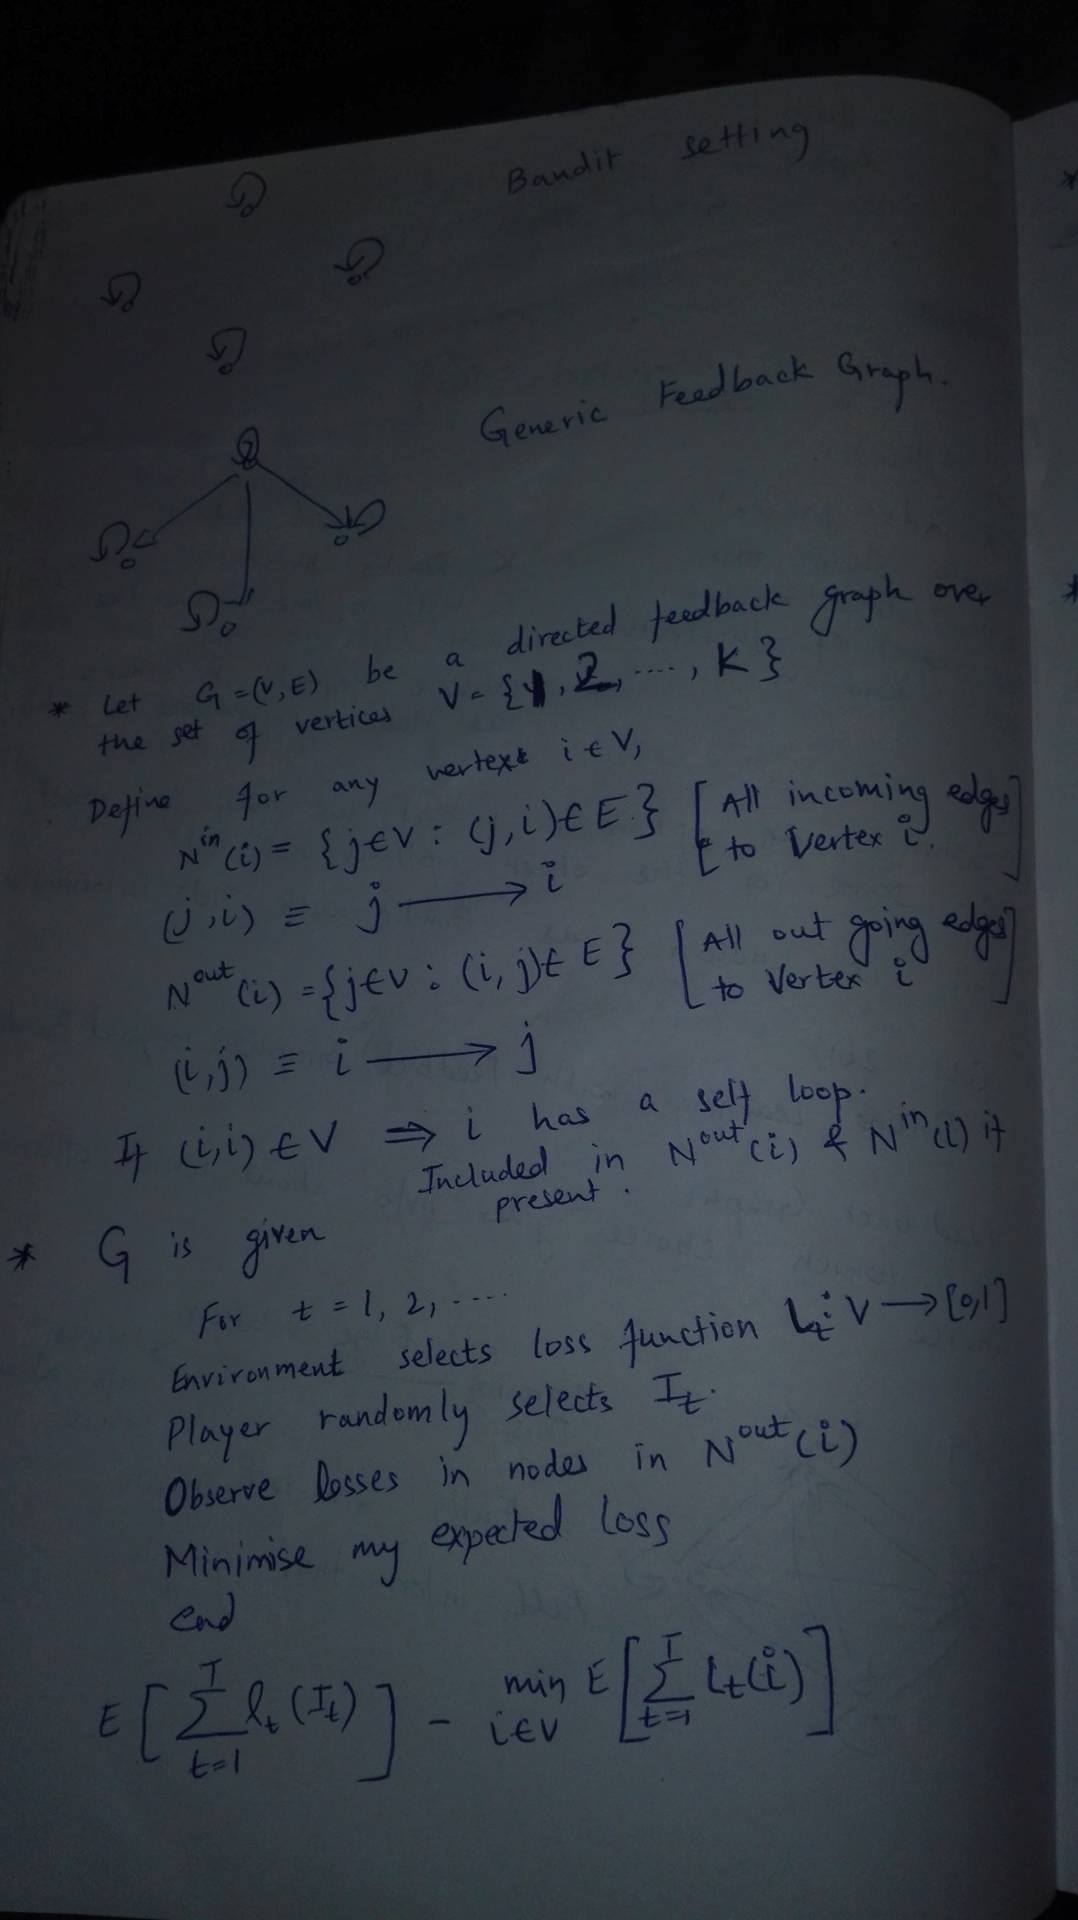 Bandit setting
Generic Feedback Graph.
* Let G=(V,E) be a directed feedback graph over
the set of vertices V = {1, 2, ...., K}
Define for any vertex i ∈ V,
N^in(i) = {j∈V : (j,i)∈E} [All incoming edges
to Vertex i.]
(j,i) ≡ j ⟶ i
N^out(i) = {j∈V : (i,j)∈E} [All out going edges
to Vertex i]
(i,j) ≡ i ⟶ j
If (i,i) ∈ V ⇒ i has a self loop.
Included in N^out(i) & N^in(i) if
present.
* G is given
For t = 1, 2, ....
Environment selects loss function L_t : V → [0,1]
Player randomly selects I_t.
Observe losses in nodes in N^out(i)
Minimise my expected loss
end
E[∑_{t=1}^{T} l_t(I_t)] - min_{i∈V} E[∑_{t=1}^{T} l_t(i)]